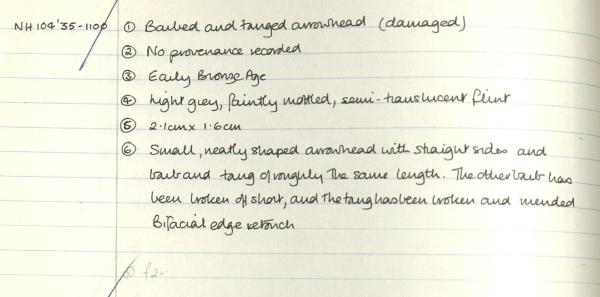 NH 104'35-1100 ① Barbed and tanged arrowhead (damaged)
② No provenance recorded
③ Early Bronze Age
④ Light grey, faintly mottled, semi-translucent flint
⑤ 2.1cm x 1.6cm
⑥ Small, neatly shaped arrowhead with straight sides and
barb and tang of roughly the same length. The other barb has
been broken off short, and the tang has been broken and mended
Bifacial edge retouch